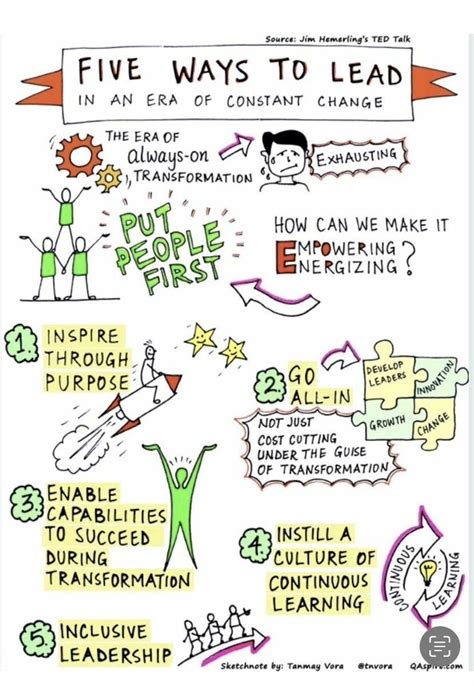 Source: Jim Hemerling's TED Talk
FIVE WAYS TO LEAD
IN AN ERA OF CONSTANT CHANGE
THE ERA OF
always-on
TRANSFORMATION
EXHAUSTING
PUT
PEOPLE
FIRST
HOW CAN WE MAKE IT
EMPOWERING
ENERGIZING?
1. INSPIRE
THROUGH
PURPOSE
2. GO
ALL-IN
NOT JUST
COST CUTTING
UNDER THE GUISE
OF TRANSFORMATION
DEVELOP
LEADERS
INNOVATION
GROWTH
CHANGE
3. ENABLE
CAPABILITIES
TO SUCCEED
DURING
TRANSFORMATION
4. INSTILL A
CULTURE OF
CONTINUOUS
LEARNING
CONTINUOUS
LEARNING
5. INCLUSIVE
LEADERSHIP
Sketchnote by: Tanmay Vora @tnvora QAspire.com